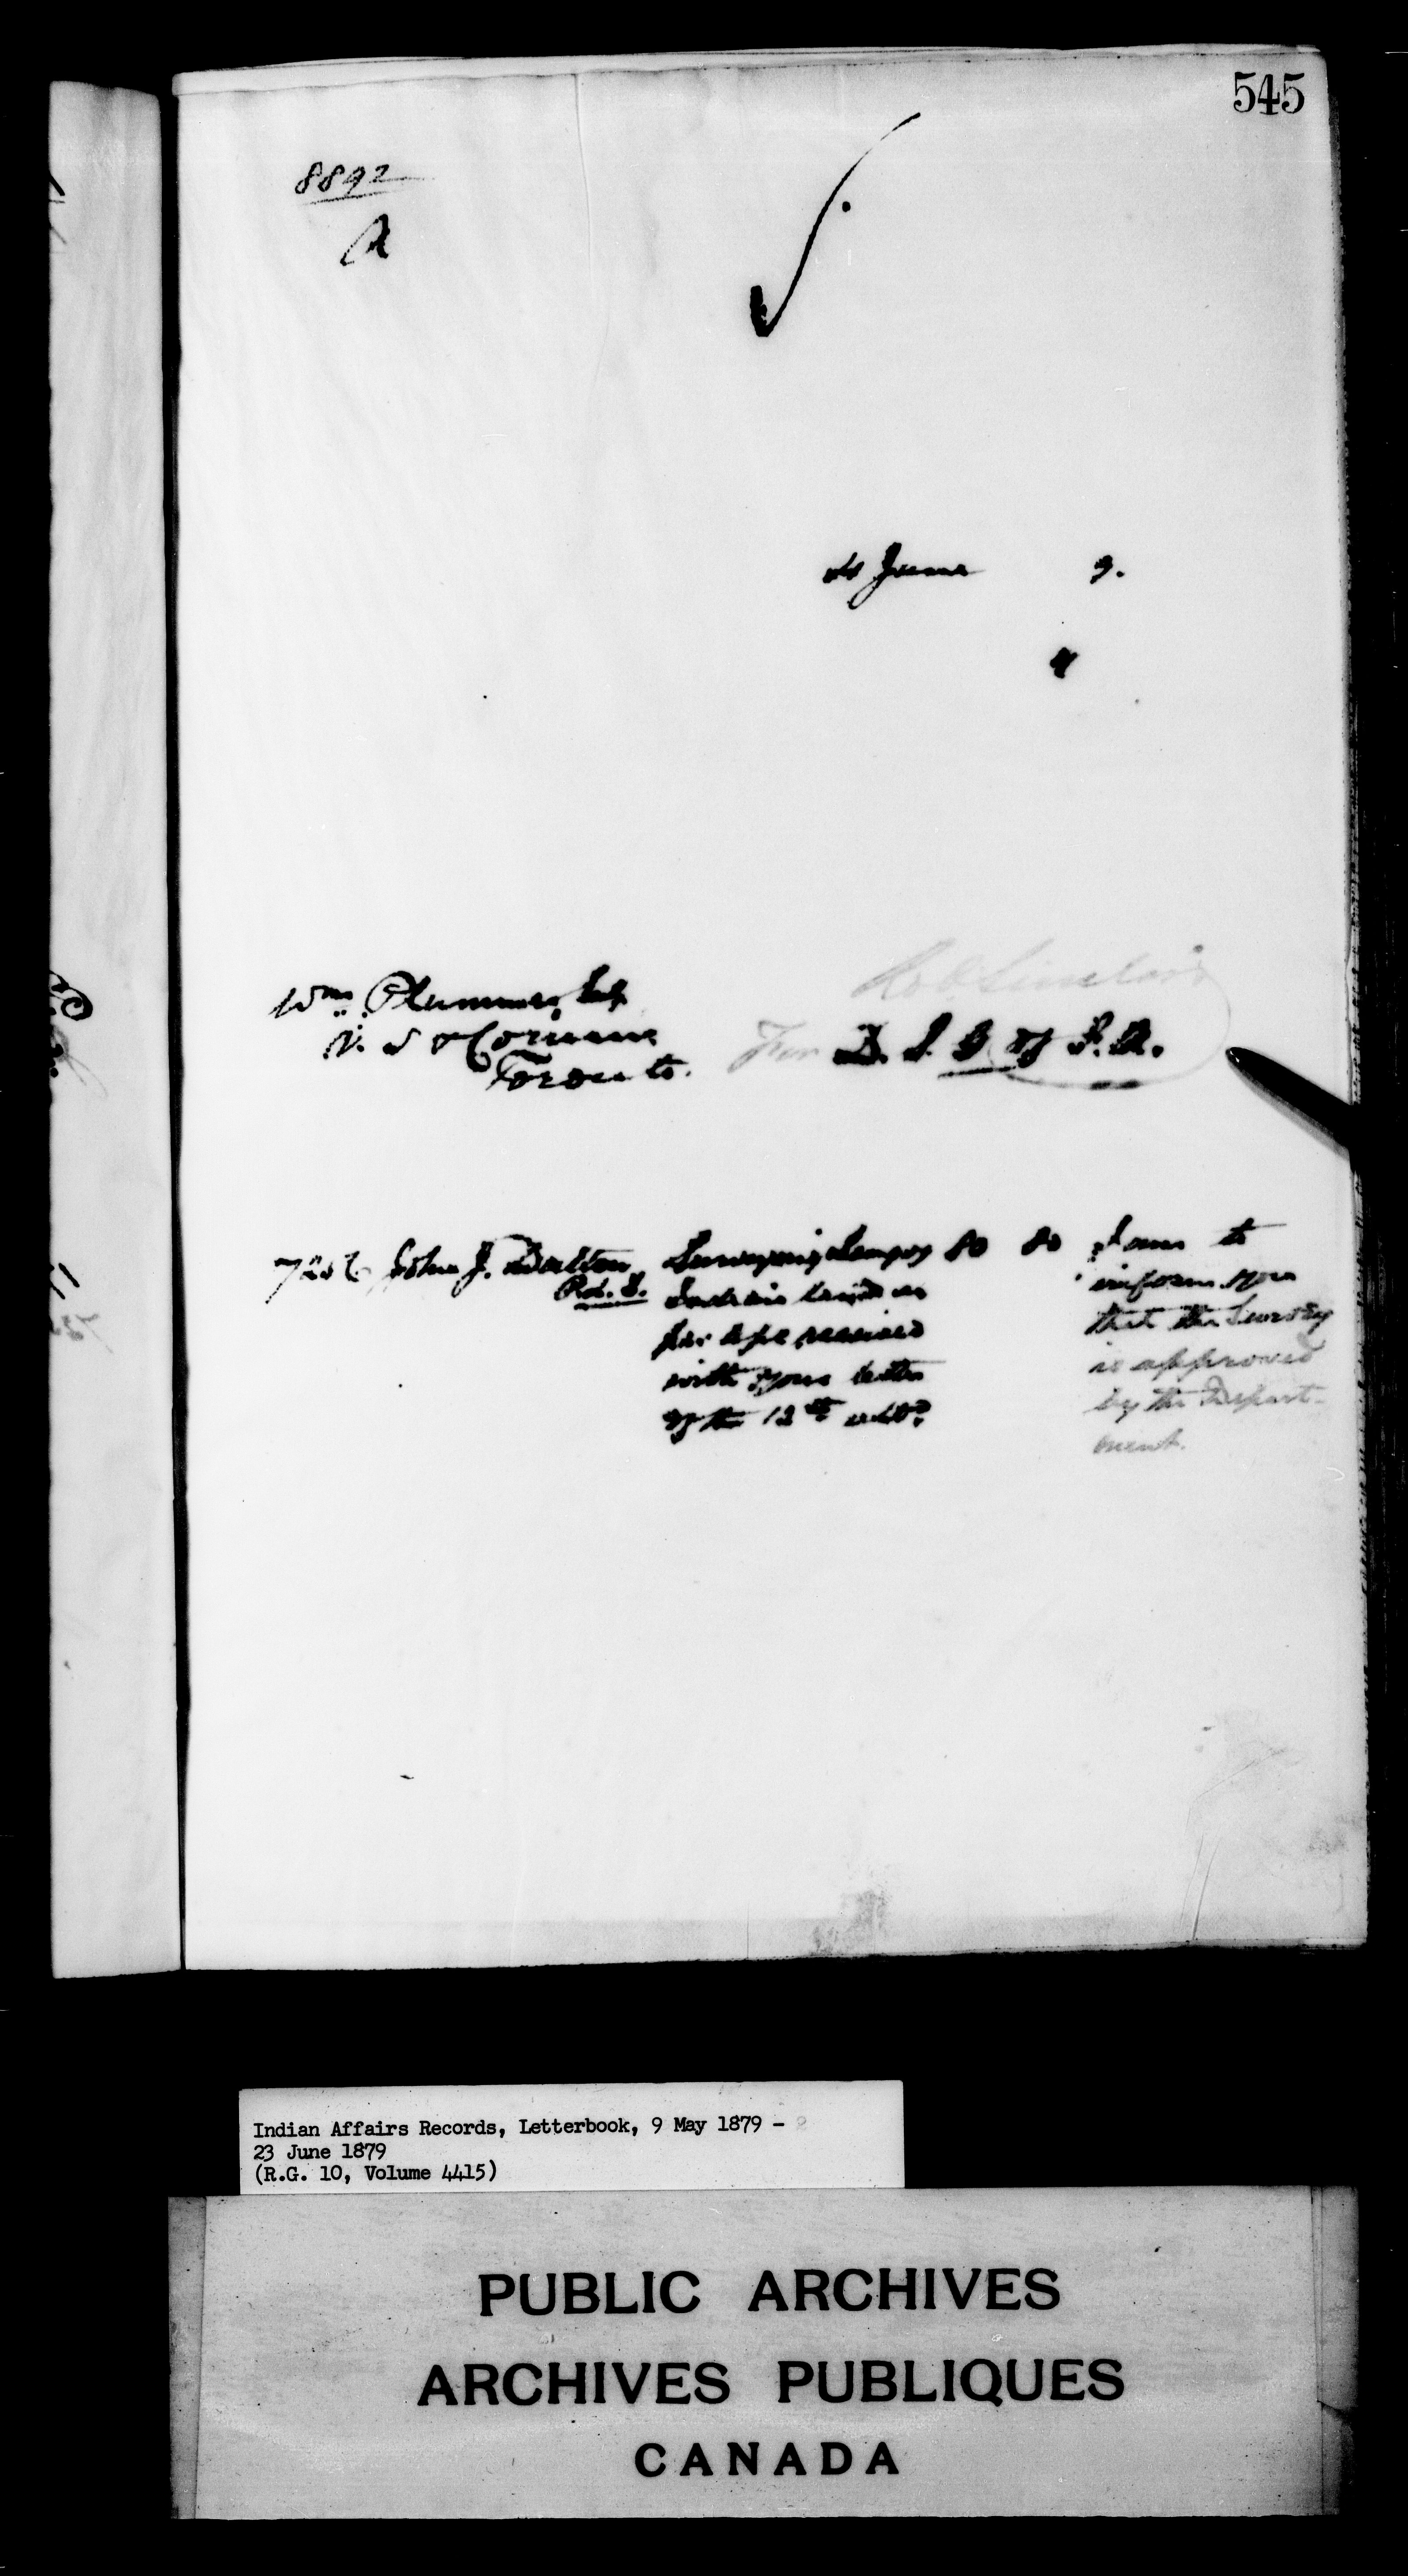 545
8892
R
June 9.
4
Wm. Plummer, Supt
V. S & Comm
Toronto.
R Sinclair
For D. S. G of I. A.
John J. Dalton
P.L.S.
Surveying 80 80
Indian lands as
per received
with your letter
of the 12th ult.
I am to
inform you
that the Survey
is approved
by the Depart-
ment.
Indian Affairs Records, Letterbook, 9 May 1879 -
23 June 1879
(R.G. 10, Volume 4415)
PUBLIC ARCHIVES
ARCHIVES PUBLIQUES
CANADA